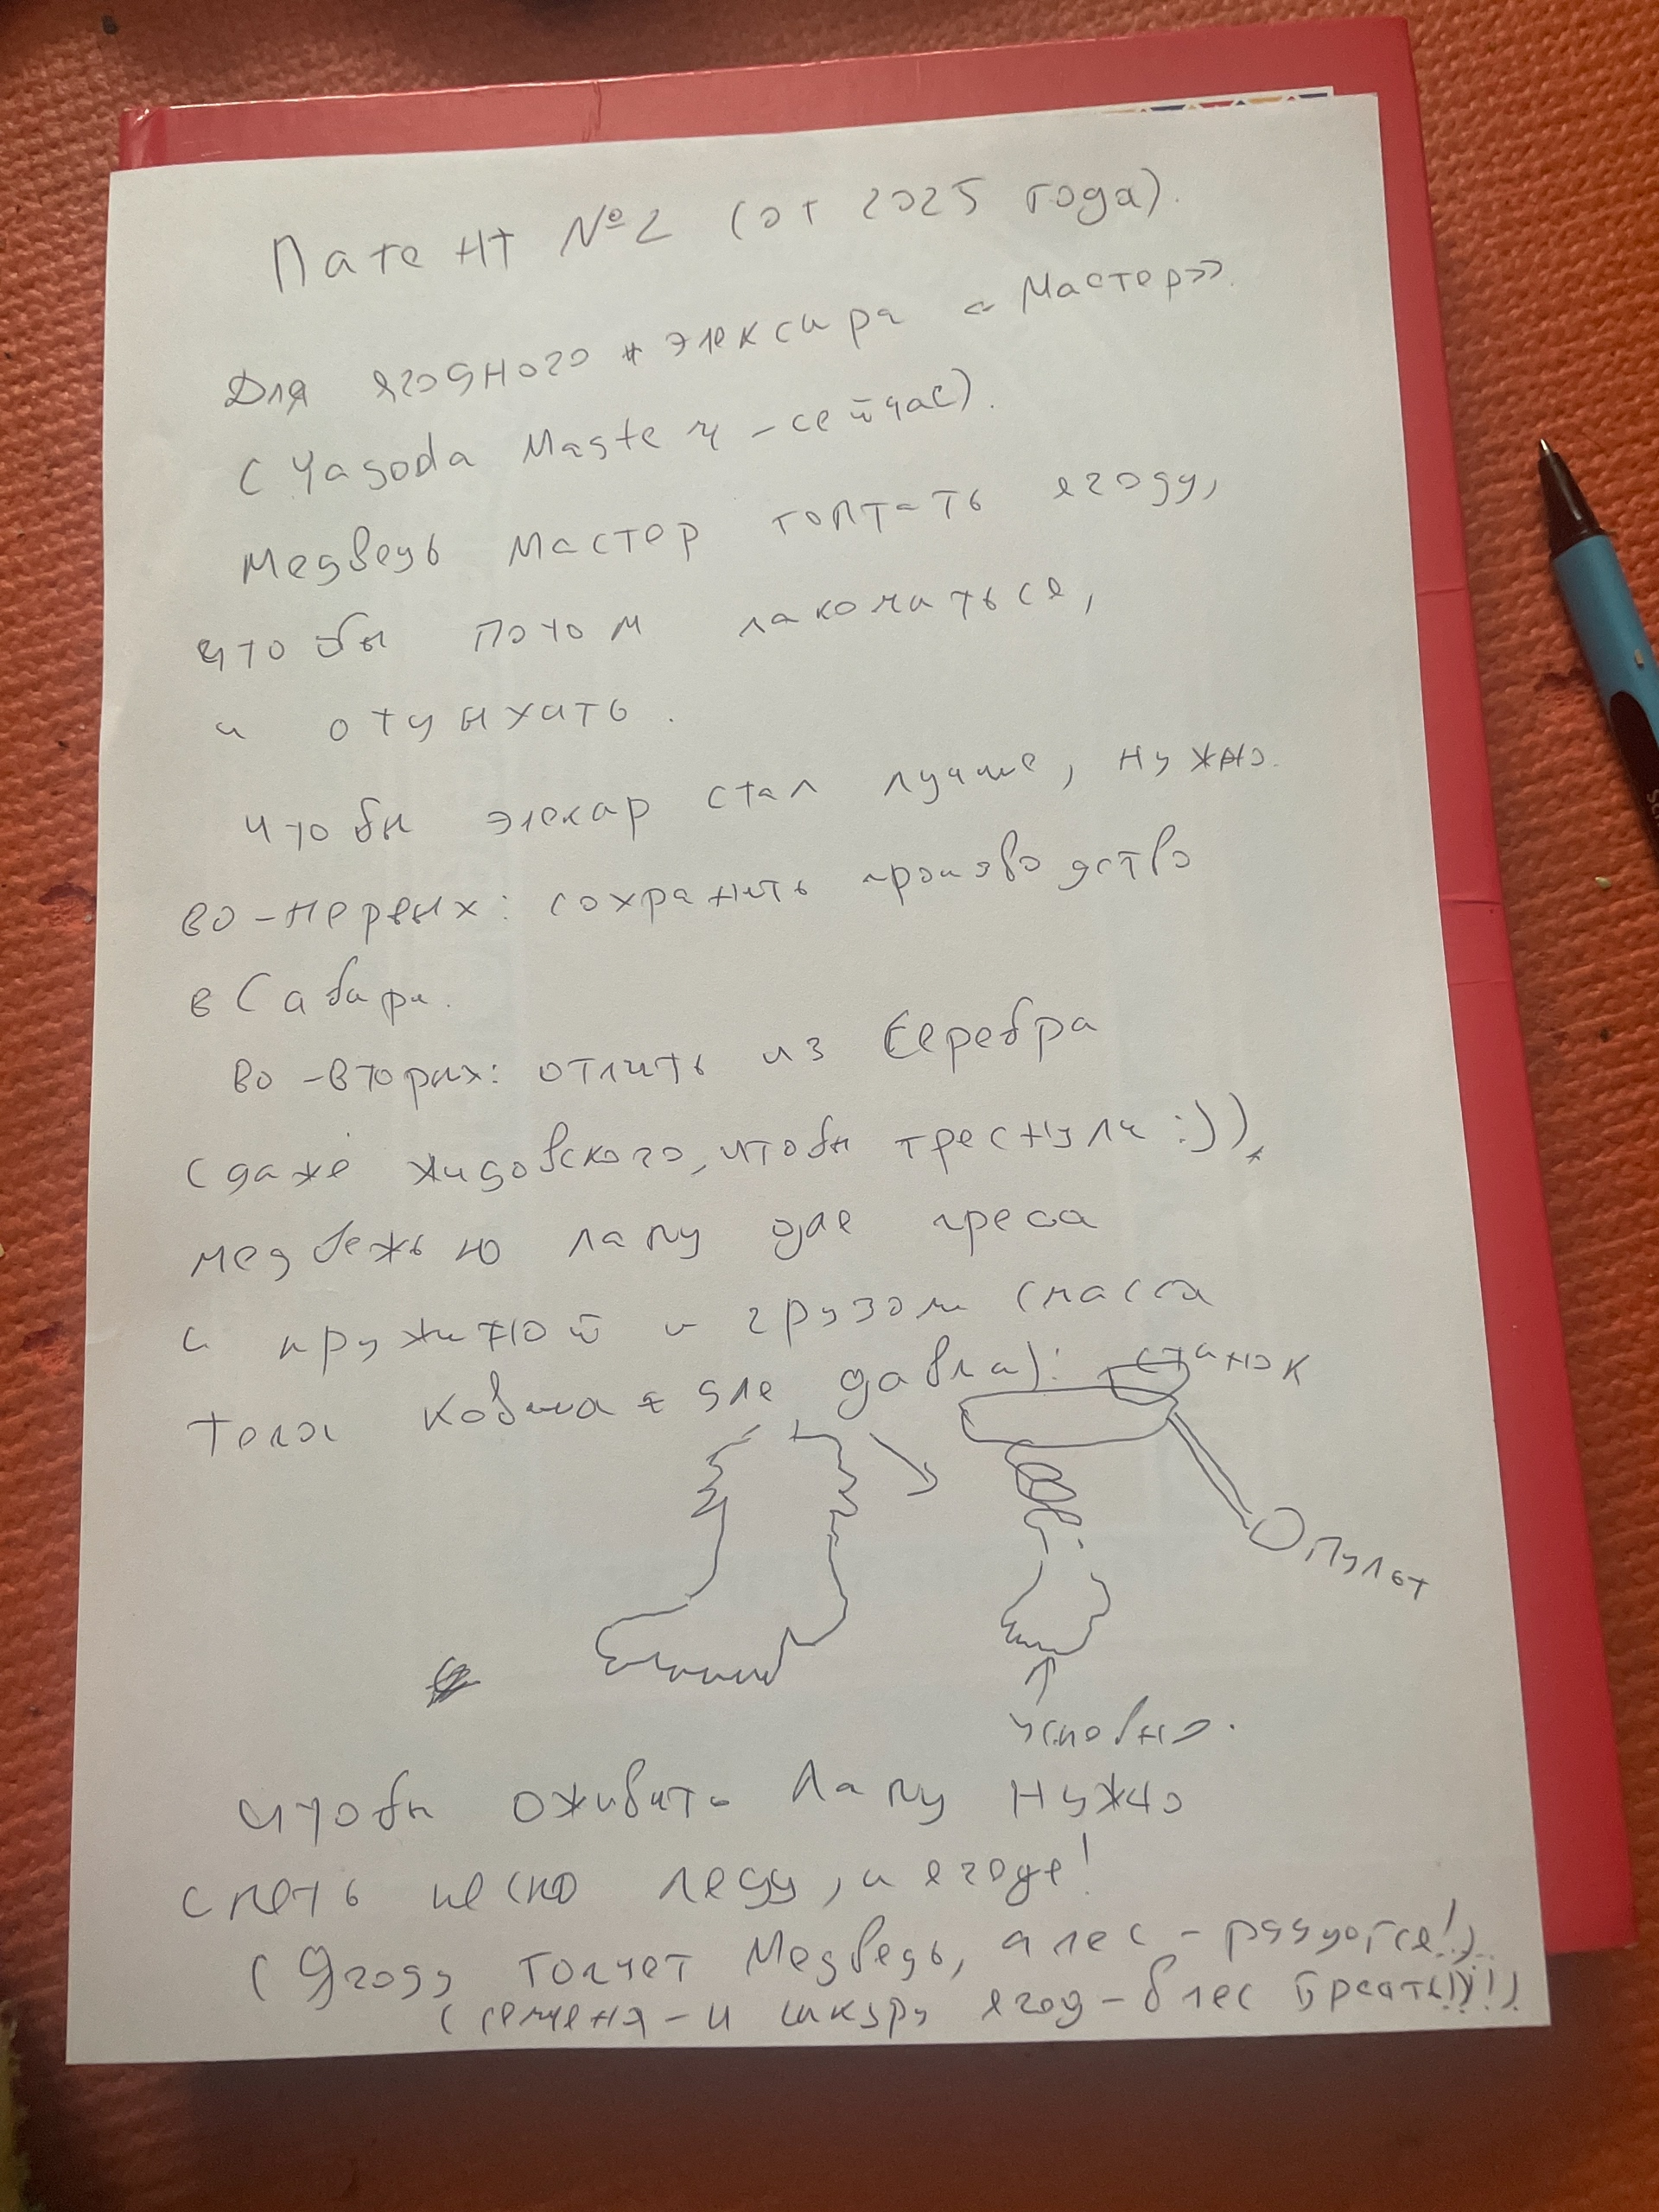 Патент №2 (от 2025 года).
Для ягодного элексира «Мастер».
(Yagoda Master - сейчас).
Медведь мастер топтать ягоду,
чтобы потом лакомиться,
и отдыхать.
Чтобы элекир стал лучше, нужно.
во-первых: сохранить производство
в Сибири.
во-вторых: отлить из Серебра
(даже жидовского, чтобы треснули :)),
медвежью лапу для преса
с пружиной и грузом (масса
тела ковша для давла): станок
Пульт
условно.
Чтобы оживить Лапу нужно
спеть песню леду, и ягоде!
(Ягоду толчет Медведь, а лес - радуется!)
(семена - и шкуру ягод - в лес бросать!)!!)